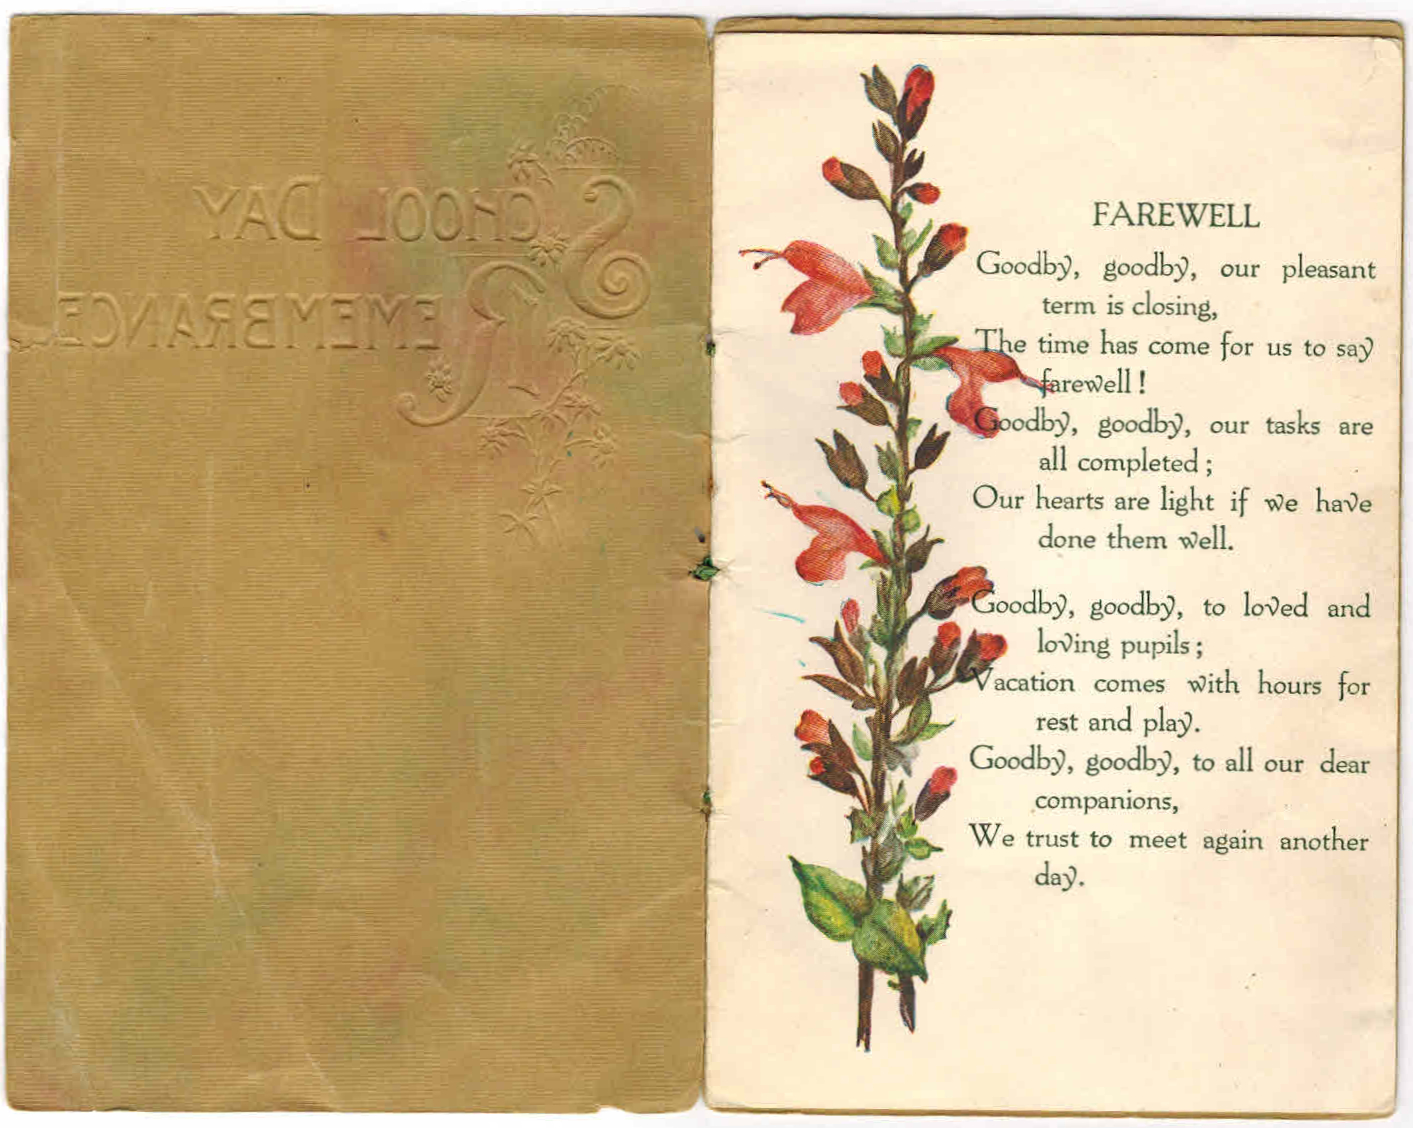 SCHOOL DAY
REMEMBRANCE
FAREWELL
Goodby, goodby, our pleasant
term is closing,
The time has come for us to say
farewell!
Goodby, goodby, our tasks are
all completed;
Our hearts are light if we have
done them well.
Goodby, goodby, to loved and
loving pupils;
Vacation comes with hours for
rest and play.
Goodby, goodby, to all our dear
companions,
We trust to meet again another
day.